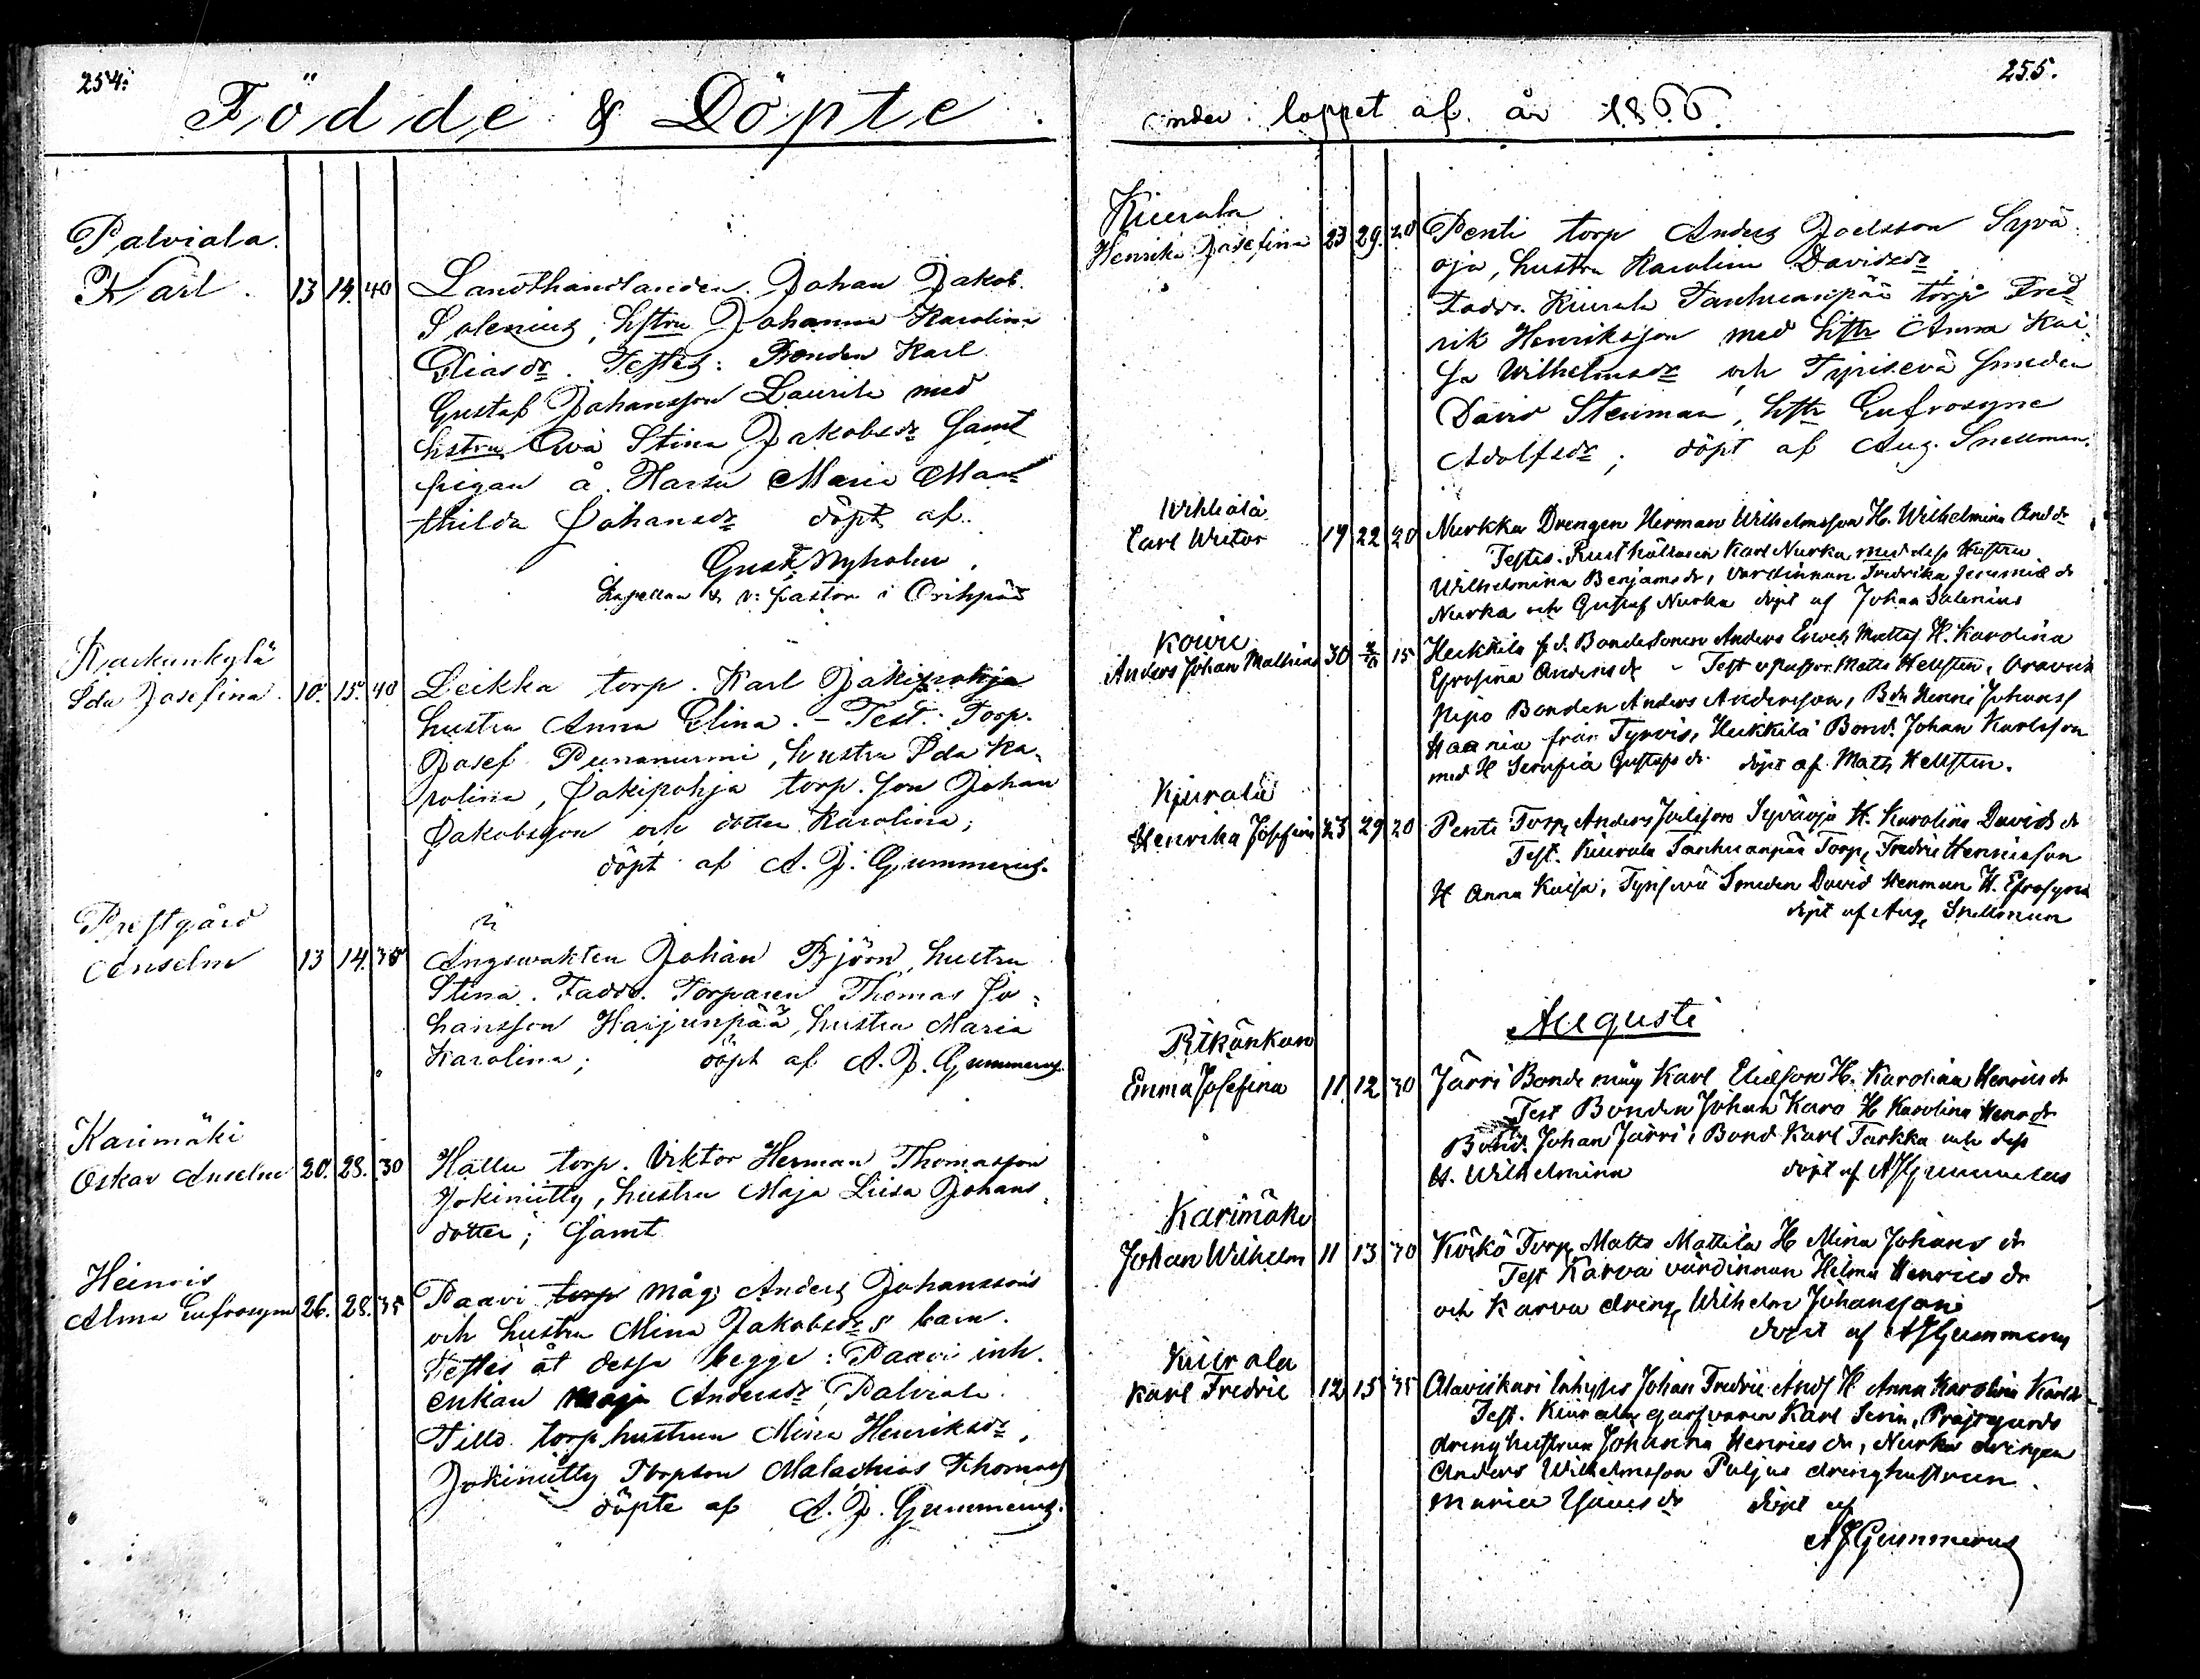 254.
Födde & Döpte.
Palviala.
Karl. 13 14. 40 Landthandlanden. Johan Jakob.
Salenius, hstru Johanna Karolina
Eliasdr. Testes: Bonden Karl
Gustaf Johansson Laurila med
hstru Eva Stina Jakobsdr samt
pigan å Harsu Maria Mat-
thilda Johansdr döpt af
Gust. Nyholm.
Kapellan & v: pastor i Orihpää
Kankankylä
Ida Josefina. 10. 15. 40. Leikka torp. Karl Jakipohja
hustru Anna Elina. - Test. Torp.
Josef Punanurmi, hustru Ida Ka-
rolina, Jakipohja torp. son Johan
Jakobsson och dotter Karolina;
döpt af A. J. Gummerus.
Prestgård
Anselm 13 14. 38 Ängswakten Johan Björn, hustru
Stina. Faddr. Torparen Thomas Jo-
hansson Harjunpää, hustru Maria
Karolina; döpt af A. J. Gummerus.
Karimäki
Oskar Anselm 20. 28. 30 Hallu torp. Viktor Herman Thomasson
Jokiniitty, hustru Maja Liisa Johans-
dotter; samt
Heinois
Alma Eufrosyn 26. 28. 35 Paavi torp måg Anders Johanssons
och hustru Mina Jakobsdrs barn.
Testes åt dessa begge: Paavi inh.
enkan Maja Andersdr, Palviala
Tillo torp hustrun Mina Henriksdr,
Jokiniitty Torpson Malachias Thomass
döpte af A. J. Gummerus.
255.
under loppet af år 1866.
Kiurala
Henrika Josefina 23 29. 20 Penti torp Anders Joelsson Syvä-
oja, hustru Karolina Davidsdr
Faddr. Kiurala Tanhuanpää torp Fred-
rik Henriksson med hstr Anna Kai-
sa Wilhelmsdr och Tyrisevä Smeden
David Stenman, hstr Eufrosyne
Adolfsdr; döpt af Aug. Snellman.
Wihliälä
Carl Wictor 19 22 20 Nurkka Drengen Herman Wilhelmsson H. Wilhelmina And dr
Testes. Rusthållaren Karl Nurka med dess Hustru
Wilhelmina Benjamsdr, Värdinnan Fredrika Jeremiæ dr
Nurka och Gustaf Nurka döpt af Johan Salenius
Kouri
Anders Johan Mathias 30 15 Heikkilä f.d. Bondesonen Anders Matts H. Karolina
Efrosina Anders dr - Test Matts Hellsten,
Pepo Bonden Anders Andersson, Bdn Henric Johanss
från Tyrvis, Heikkilä Bond. Johan Karlsson
med H Serafia Gustafs dr. döpt af Math Hellsten.
Kjurala
Henrika Josefina 23 29 20 Penti Torp, Anders Joelsson Syväoja H. Karolina Davids dr
Test. Kiurala Tanhuanpää Torp, Fredric Henricsson
H Anna Kaisa, Tyrisevä Smeden David Stenman H. Efrosyna
döpt af Aug, Snellman
Augusti
Rikänkan
Emma Josefina 11 12 30 Järri Bonde måg Karl Eliasson H. Karolina Henrics dr
Test Bonden Johan Karo H Karolina Henr dr
Bond. Johan Järri, Bond Karl Tarkka och dess
H. Wilhelmina döpt af AJGummerus
Karimäki
Johan Wilhelm 11 13 30 Körkö Torp, Matts Mattila H Mina Johans dr
Test Karva värdinnan Hilma Henrics dr
och Karva dreng, Wilhelm Johansson
döpt af AJGummerus
Kiurala
Karl Fredric 12 15 35 Alaviskari Inhyses Johan Fredric Ands H Anna Karolina Karlsdr
Test. Kiurala garfvaren Karl Serin, Prästgårds
drenghustrun Johanna Henrics dr, Nurka drengen
Anders Wilhelmsson Puljus drenghustrun
Maria dr döpt af
AJGummerus